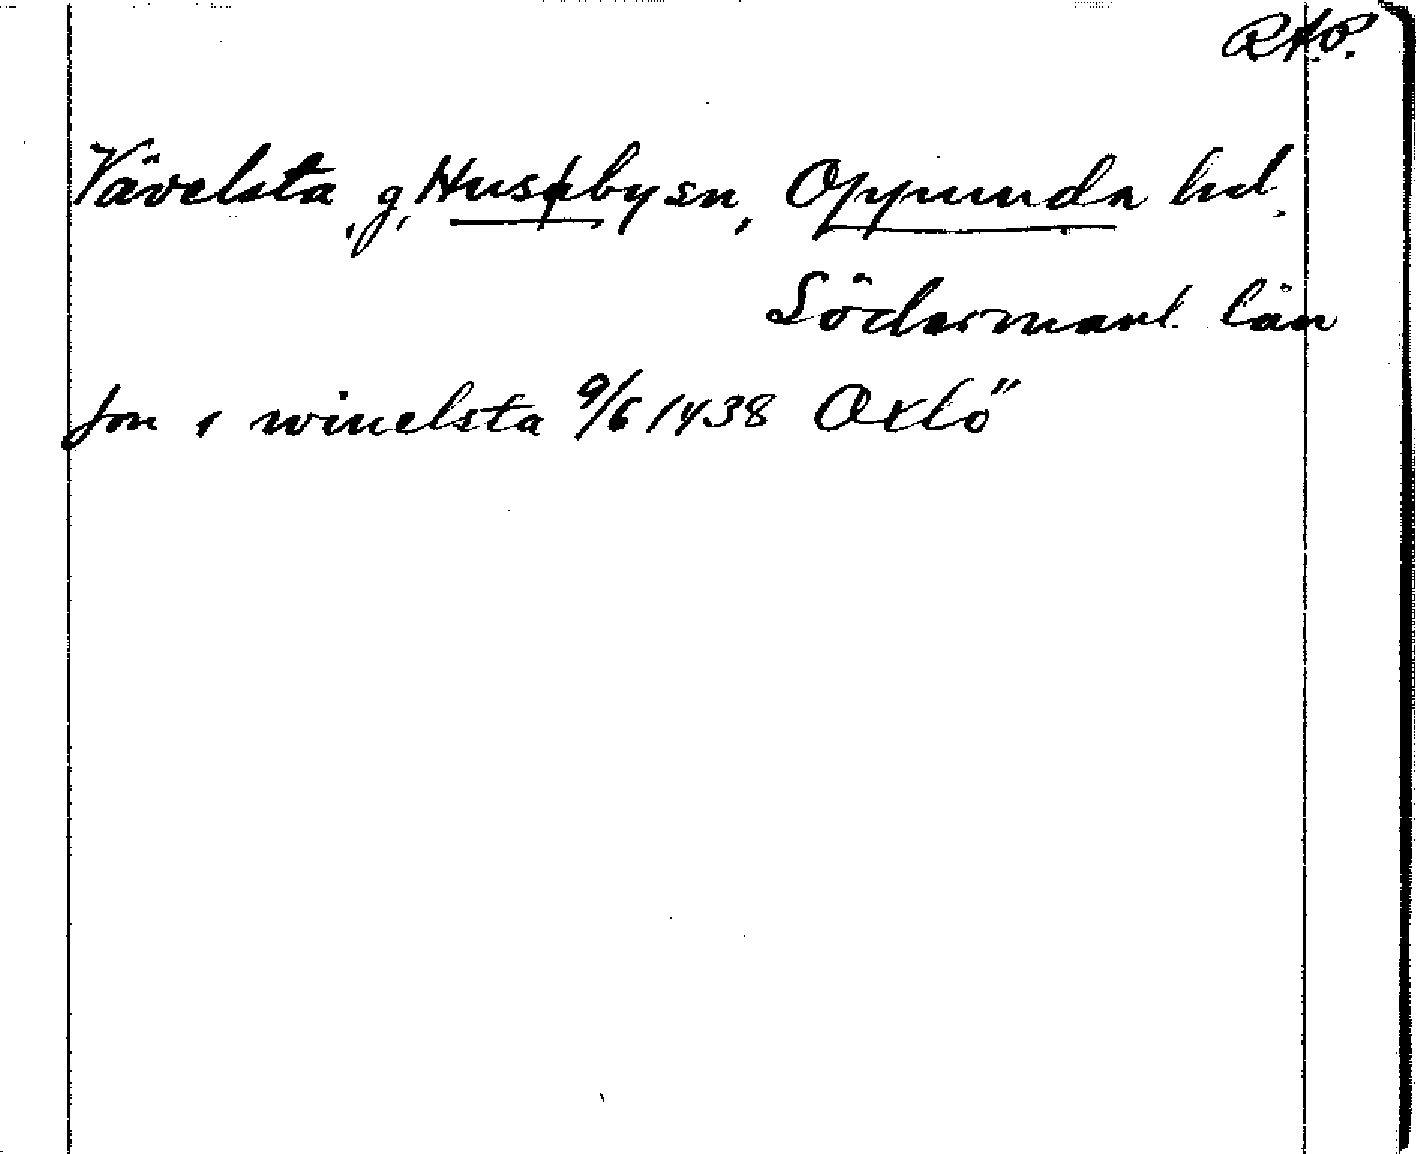 RAP.
Vävelsta, g, Husby sn, Oppunda hd.
Södermanl. län
jon i winelsta 9/6 1438 Oxlö"